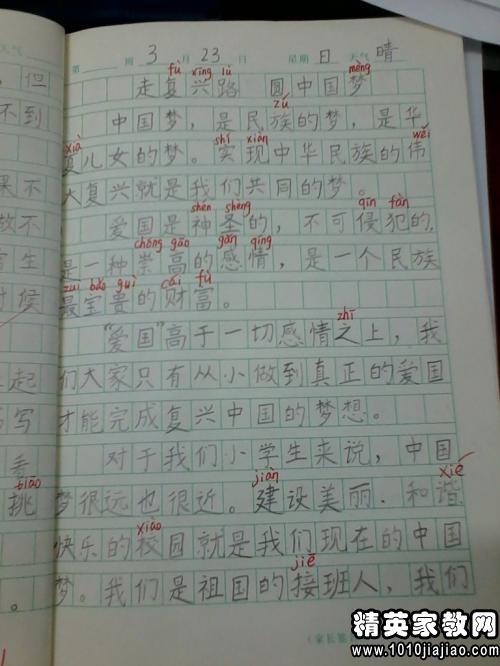 天气
第 周 3 月 23 日 星期 日 天气 晴
fù xīng lù mèng
走复兴路 圆中国梦
zú
中国梦，是民族的梦，是华
xià shí xiàn wěi
夏儿女的梦。实现中华民族的伟
大复兴就是我们共同的梦。
shén shèng qīn fàn
爱国是神圣的，不可侵犯的，
chóng gāo gǎn qíng
是一种崇高的感情，是一个民族
zuì bǎo guì cái fù
最宝贵的财富。
zhī
"爱国"高于一切感情之上，我
们大家只有从小做到真正的爱国
才能完成复兴中国的梦想。
对于我们小学生来说，中国
jiàn xié
梦很远也很近。建设美丽、和谐
xiào
快乐的校园就是我们现在的中国
jiē
梦。我们是祖国的接班人，我们
，但
不到
果不
不
生
时候
起
写
看
tiāo
挑
。
（家长签
精英家教网
www.1010jiajiao.com